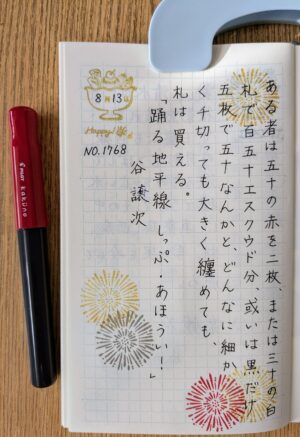 ある者は五十の赤を二枚、または三十の白
札で百五十エスクウド分、或いは黒だけ
五枚で五十なんかと、どんなに細か
く千切っても大きく纏めても、
札は買える。
「踊る地平線 しっぷ・あほうい！」
谷 譲次
8月13日
Happy!
NO.1768
PILOT kakuno